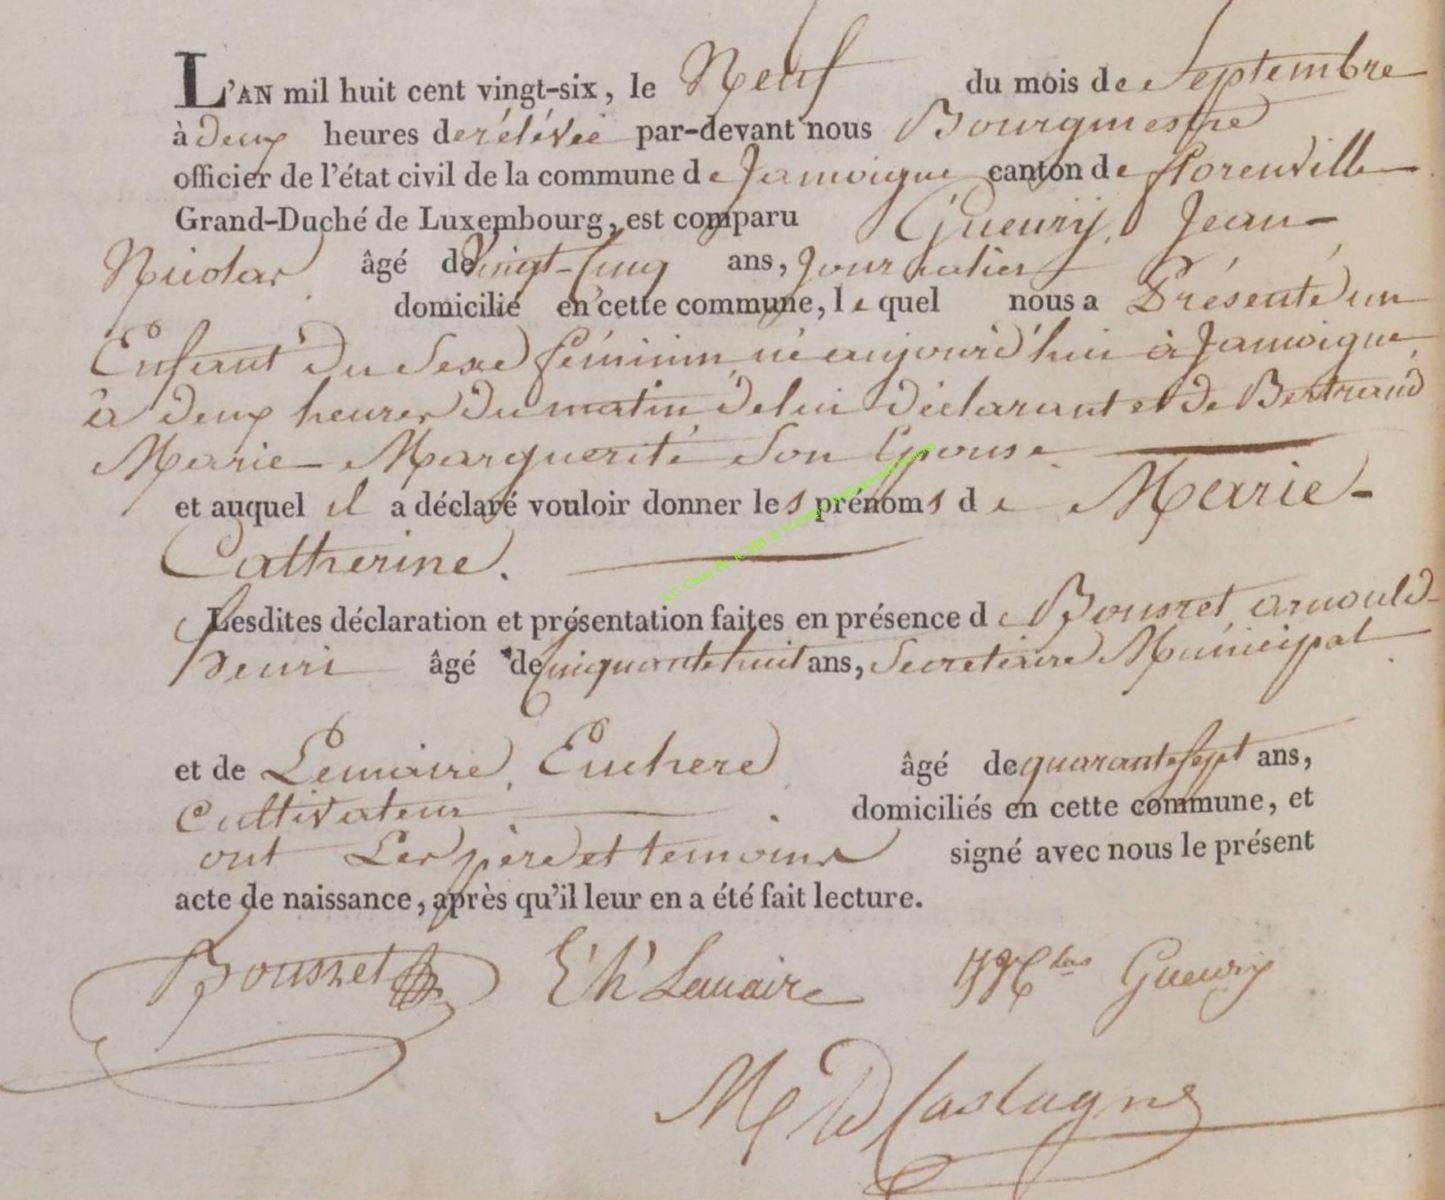 L'AN mil huit cent vingt-six, le Neuf du mois de Septembre
à deux heures de rélévée par-devant nous Bourgmestre
officier de l'état civil de la commune de Jamoigne canton de florenville
Grand-Duché de Luxembourg, est comparu Gueury, Jean-
Nicolas âgé de vingt-Cinq ans, Journalier
domicilié en cette commune, le quel nous a Présenté un
Enfant du Sexe féminin, né aujourd'hui à Jamoigne,
à deux heures du matin, de lui déclarant et de Bertrand
Marie Marguerite Son Epouse.
et auquel il a déclaré vouloir donner les prénoms de Marie-
Catherine.
Lesdites déclaration et présentation faites en présence de Bousret, arnould-
henri âgé de Cinquante huit ans, Secretaire Municipal
et de Lemaire, Euchere âgé de quarante Sept ans,
Cultivateur domiciliés en cette commune, et
ont Les père et temoins signé avec nous le présent
acte de naissance, après qu'il leur en a été fait lecture.
Bousret Eh Lemaire JN<sup>las</sup> Gueury